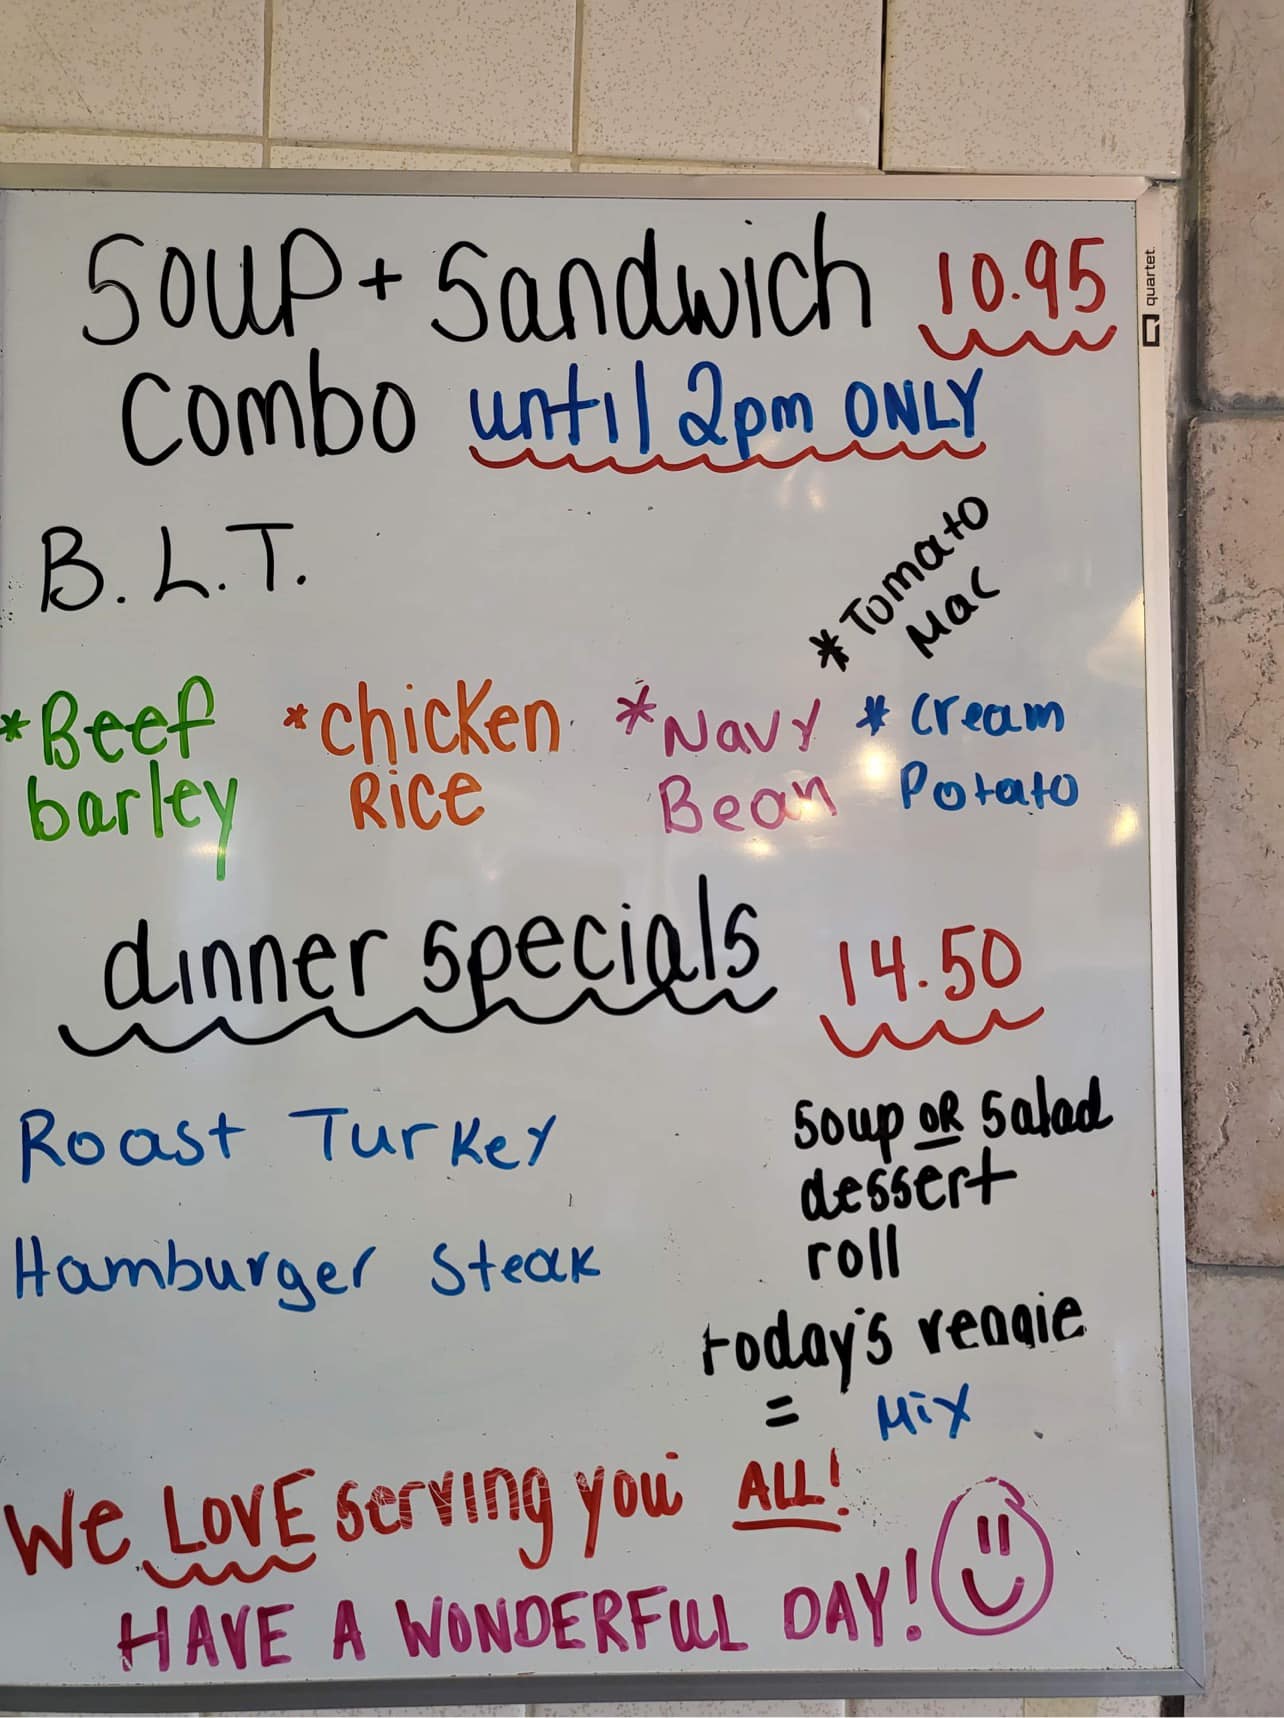 Soup + Sandwich 10.95
Combo until 2pm ONLY
B.L.T.
* Tomato
Mac
*Beef
barley
*chicken
Rice
*Navy
Bean
* Cream
Potato
dinner specials 14.50
Roast Turkey
Hamburger Steak
Soup OR Salad
dessert
roll
today's veggie
= Mix
We LOVE serving you ALL!
HAVE A WONDERFUL DAY!
quartet